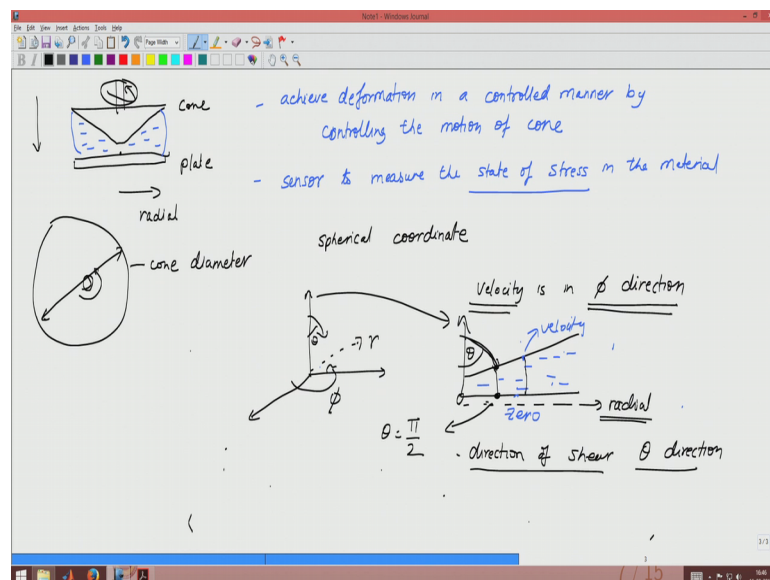 Note1 - Windows Journal
File Edit View Insert Actions Tools Help
Page Width
B I
cone
plate
radial
cone diameter
- achieve deformation in a controlled manner by
controlling the motion of cone
- sensor to measure the state of stress in the material
spherical coordinate
velocity is in ϕ direction
θ
r
ϕ
θ
velocity
zero
radial
θ = π/2
direction of shear θ direction
3/3
3
16:46